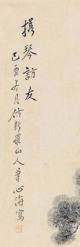 携琴訪友
己酉冬月仿新羅山人筆心海寫